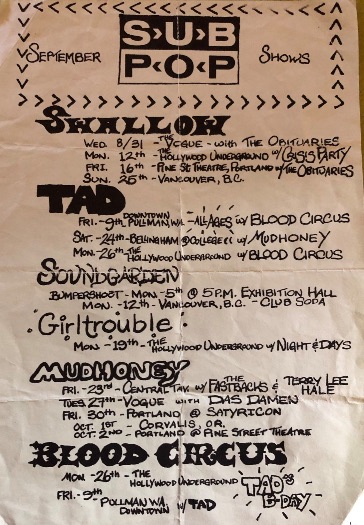 SEPTEMBER SUB POP SHOWS
SWALLOW
WED. 8/31 - THE VOGUE - with THE OBITUARIES
MON. 12th - THE HOLLYWOOD UNDERGROUND w/ CRISIS PARTY
FRI. 16th - PINE ST. THEATRE, PORTLAND w/ THE OBITUARIES
SUN. 25th - VANCOUVER, B.C.
TAD
FRI. - 9th DOWNTOWN PULLMAN, WA. - ALL AGES w/ BLOOD CIRCUS
SAT. - 24th - BELLINGHAM @ COLLEGE w/ MUDHONEY
MON. - 26th - THE HOLLYWOOD UNDERGROUND w/ BLOOD CIRCUS
SOUNDGARDEN
BUMPERSHOOT - MON - 5th @ 5 P.M. EXHIBITION HALL
MON. - 12th - VANCOUVER, B.C. - CLUB SODA
Girltrouble
MON - 19th - THE HOLLYWOOD UNDERGROUND w/ NIGHT & DAYS
MUDHONEY
FRI. - 23rd - CENTRAL TAV. w/ THE FASTBACKS & TERRY LEE HALE
TUES 27th - VOGUE WITH DAS DAMEN
FRI. 30th - PORTLAND @ SATYRICON
OCT. 1st - CORVALIS, OR.
OCT. 2nd - PORTLAND @ PINE STREET THEATRE
BLOOD CIRCUS
MON - 26th - THE HOLLYWOOD UNDERGROUND
FRI. - 9th PULLMAN WA. DOWNTOWN w/ TAD
TAD'S B-DAY